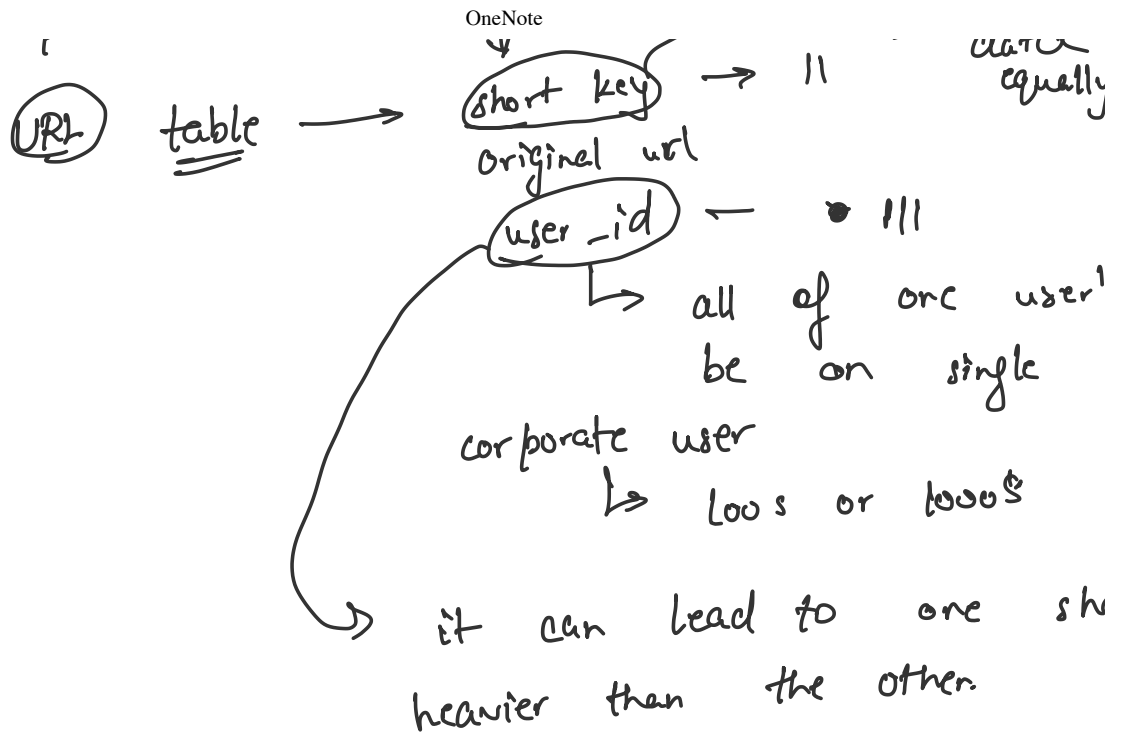 OneNote
equally
URL table → short key → ||
original url
user_id ← • |||
all of one user'
be on single
corporate user
100s or 1000s
it can lead to one sh
heavier than the other.